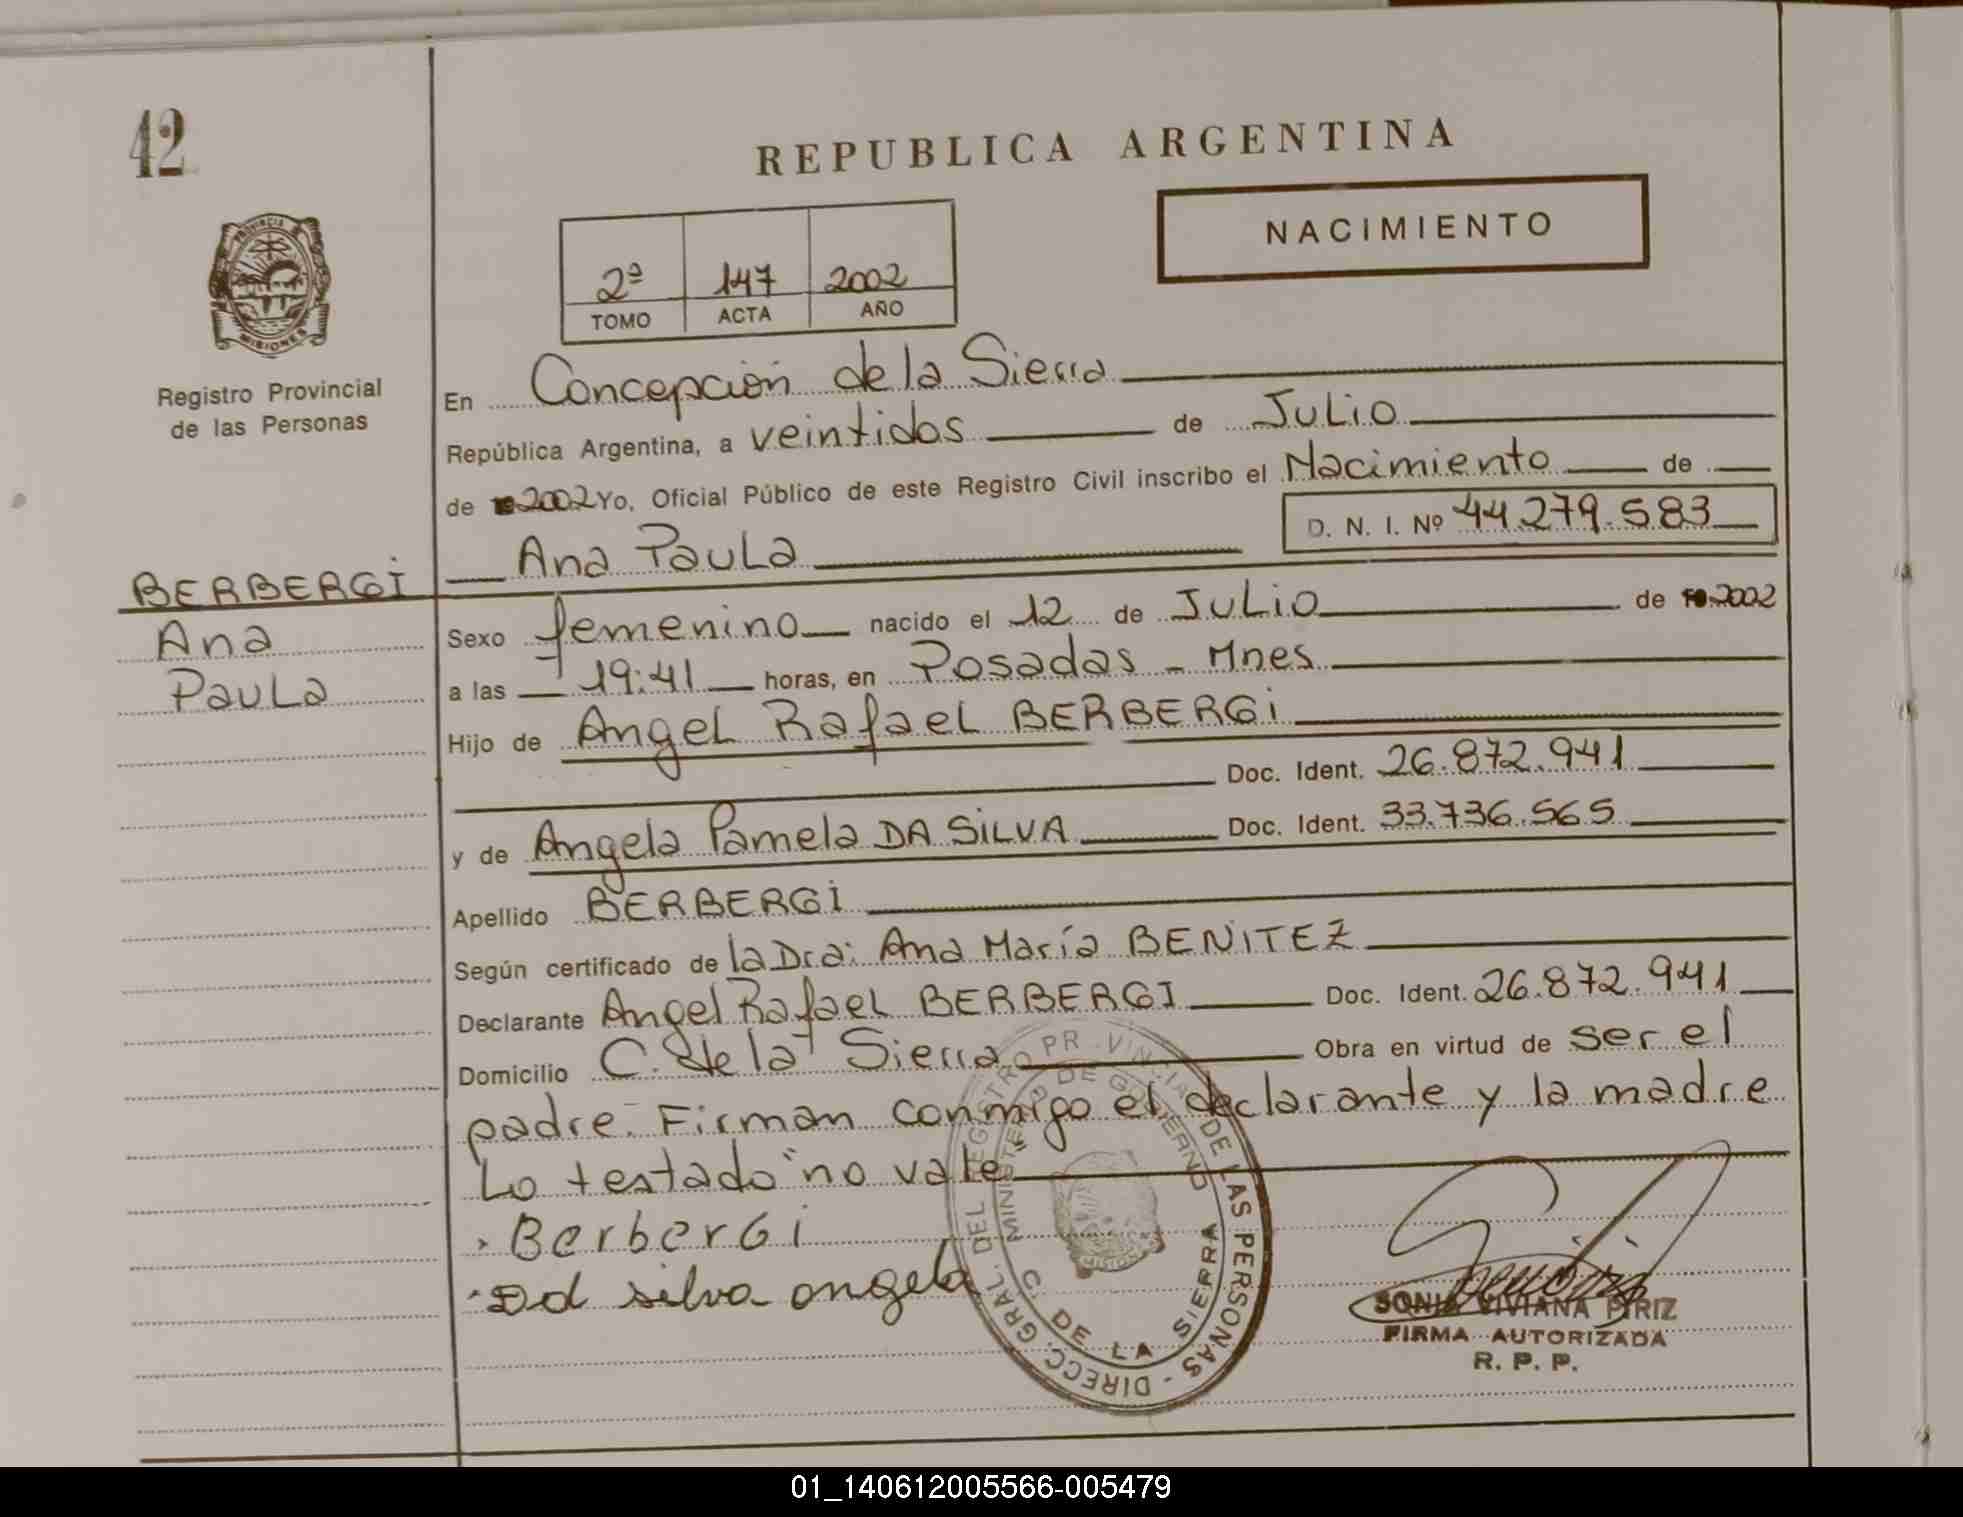 42
REPUBLICA ARGENTINA
NACIMIENTO
2ª 147 2002
TOMO ACTA AÑO
PROVINCIA
MISIONES
Registro Provincial
de las Personas
En Concepción de la Sierra
República Argentina, a veintidos de Julio
de 2002 Yo, Oficial Público de este Registro Civil inscribo el Nacimiento de
D. N. I. Nº 44.279.583
Ana Paula
BERBERGI
Ana
Paula
Sexo femenino nacido el 12 de Julio de 2002
a las 19:41 horas, en Posadas - Mnes
Hijo de Angel Rafael BERBERGI
Doc. Ident. 26.872.941
y de Angela Pamela DA SILVA Doc. Ident. 33.736.565
Apellido BERBERGI
Según certificado de la Dra: Ana María BENITEZ
Declarante Angel Rafael BERBERGI Doc. Ident. 26.872.941
Domicilio C. de la Sierra Obra en virtud de ser el
padre. Firman conmigo el declarante y la madre
Lo testado "no vale
Berbergi
Da silva angela
DIRECC. GRAL. DEL REGISTRO PROVINCIAL DE LAS PERSONAS -
MINISTERIO DE GOBIERNO
C. DE LA SIERRA
SONIA VIVIANA PIRIZ
FIRMA AUTORIZADA
R. P. P.
01_140612005566-005479